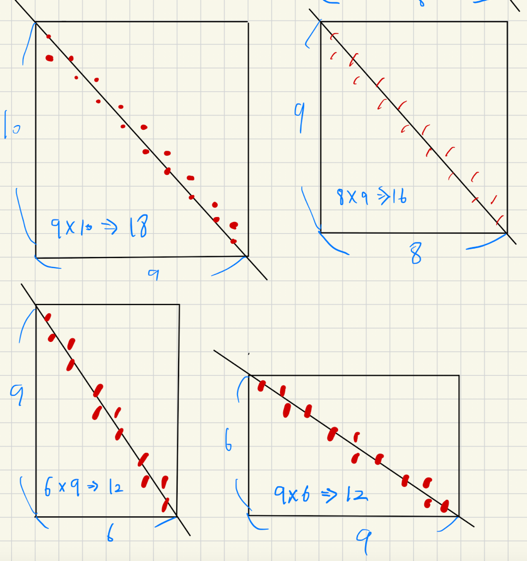 10
9×10 ⇒ 18
9
9
8×9 ⇒ 16
8
9
6×9 ⇒ 12
6
6
9×6 ⇒ 12
9